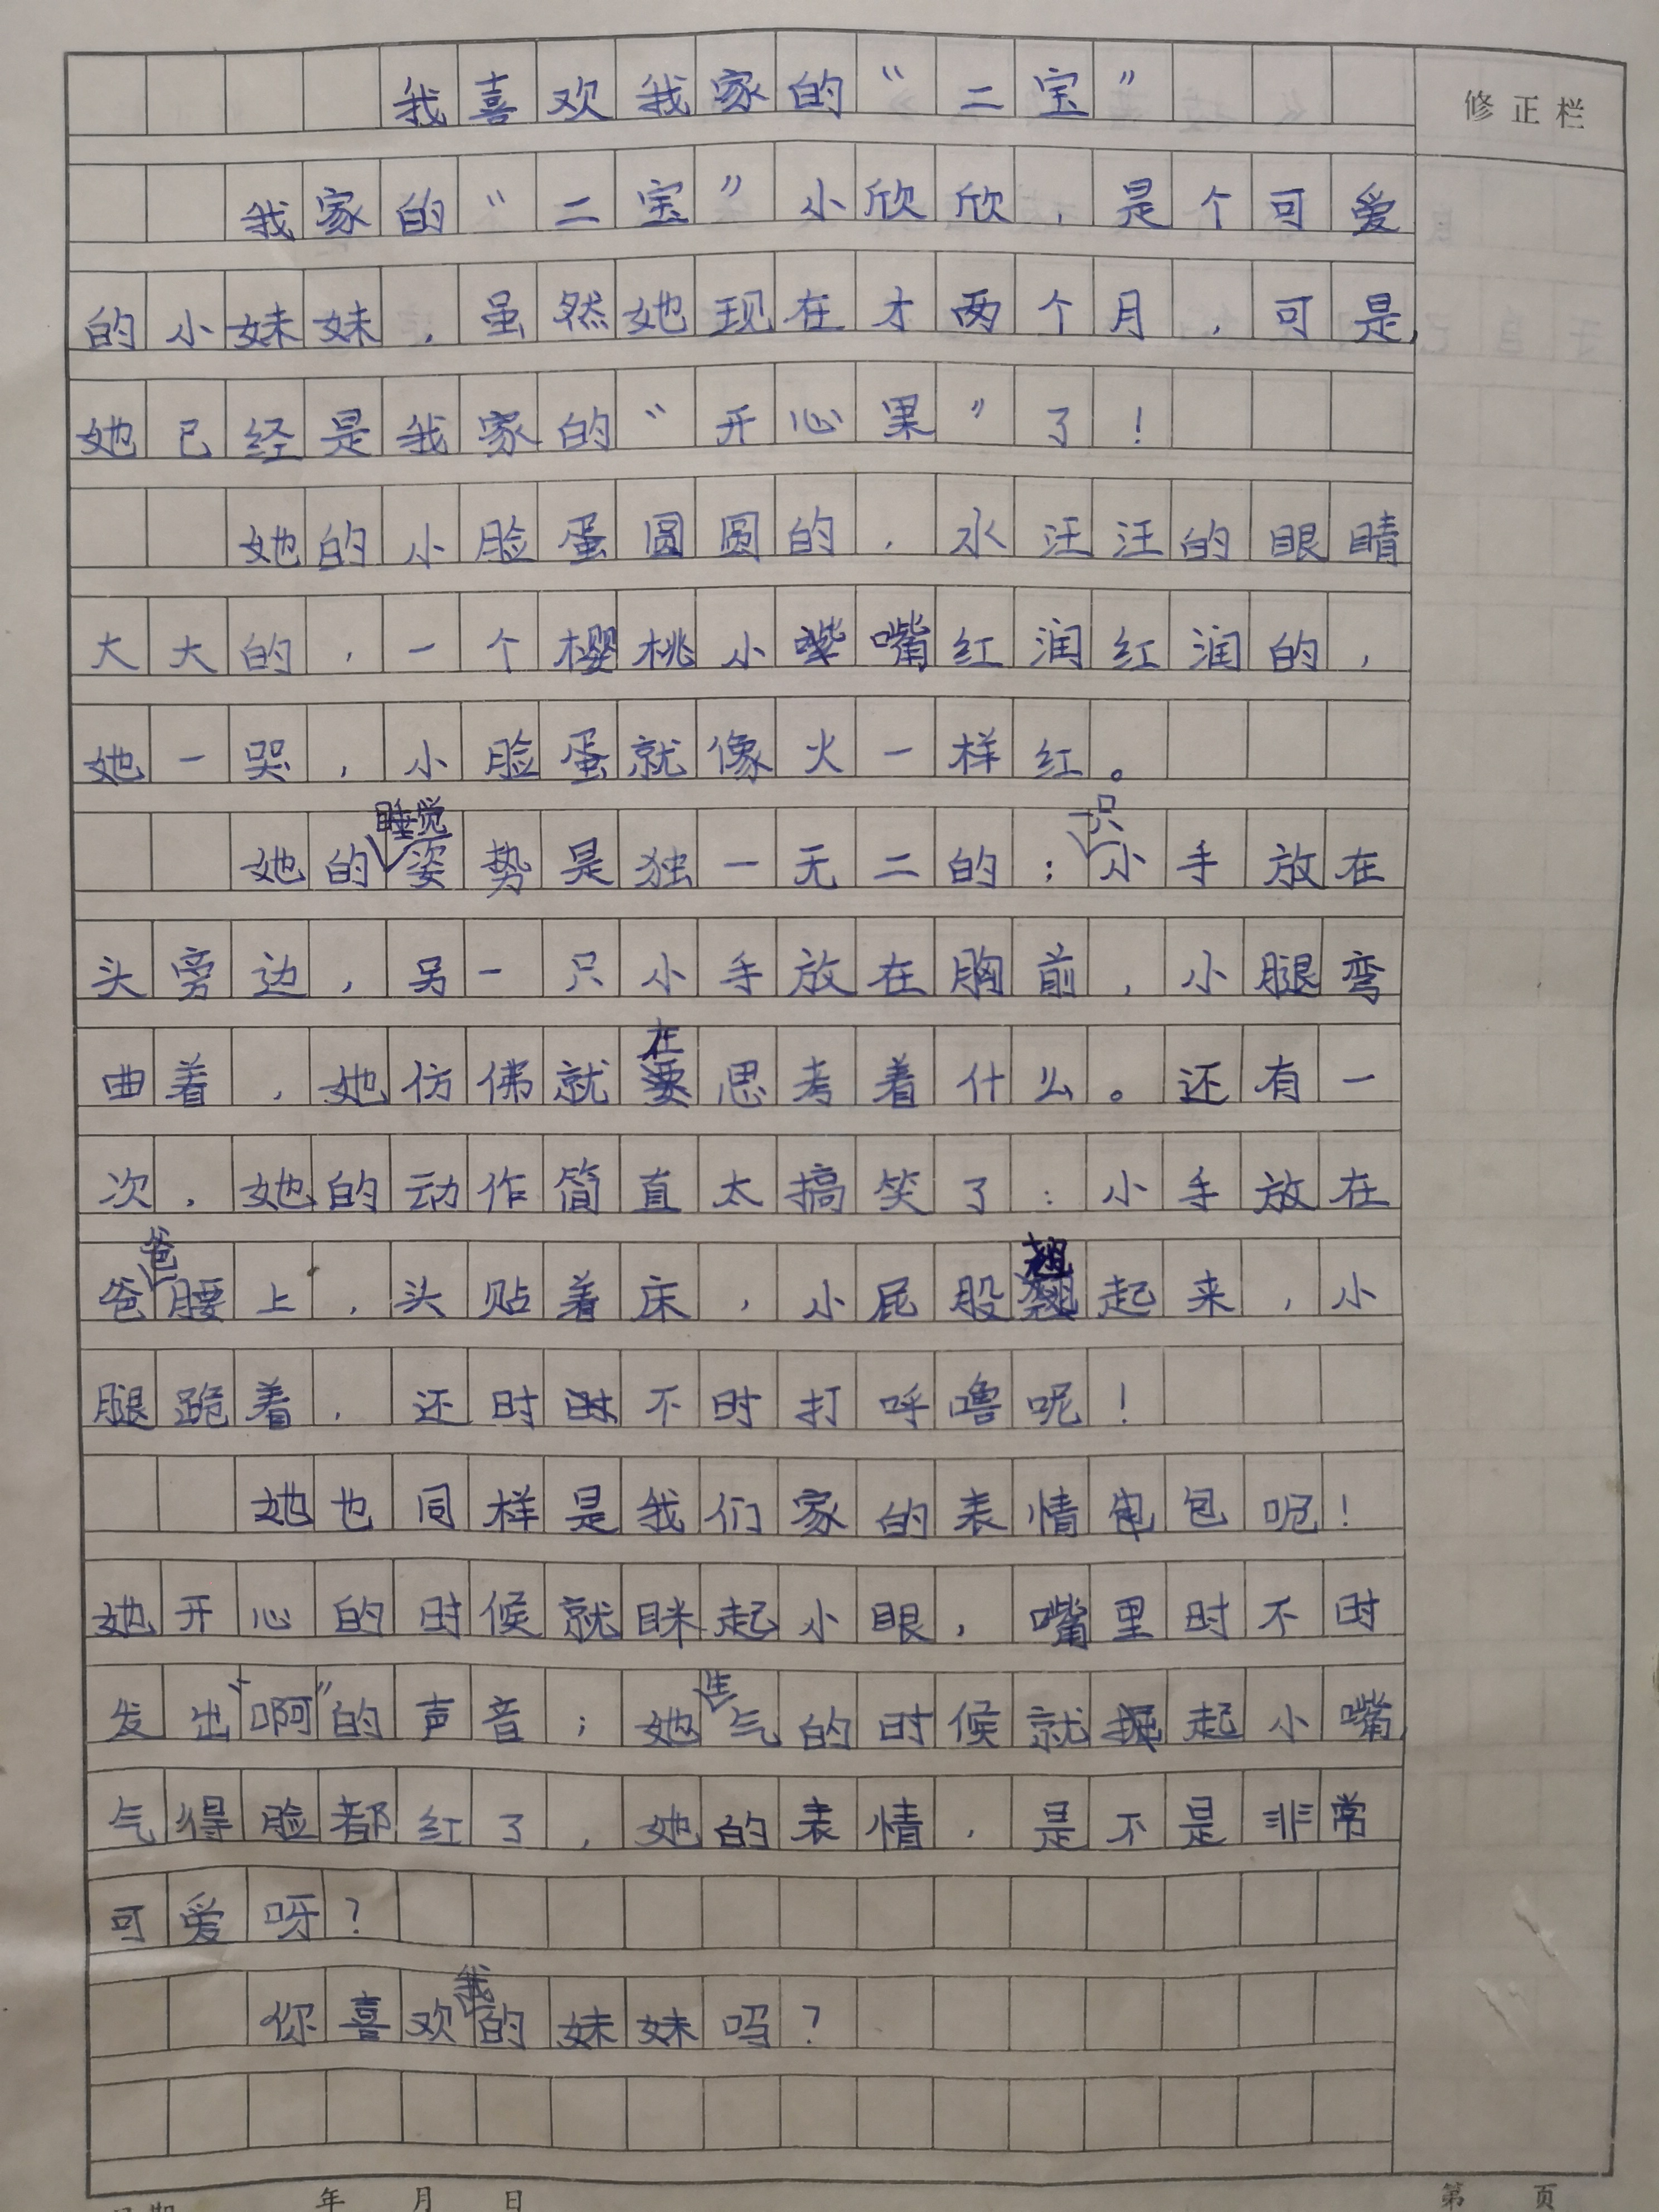 我喜欢我家的“二宝”
修正栏
我家的“二宝”小欣欣，是个可爱
的小妹妹，虽然她现在才两个月，可是，
她已经是我家的“开心果”了！
她的小脸蛋圆圆的，水汪汪的眼睛
大大的，一个樱桃小嘴红润红润的，
她一哭，小脸蛋就像火一样红。
她的睡觉姿势是独一无二的：一只小手放在
头旁边，另一只小手放在胸前，小腿弯
曲着，她仿佛就在思考着什么。还有一
次，她的动作简直太搞笑了：小手放在
爸爸腰上，头贴着床，小屁股翘起来，小
腿跪着，还时不时打呼噜呢！
她也同样是我们家的表情包呢！
她开心的时候就眯起小眼，嘴里时不时
发出“啊”的声音；她生气的时候就撅起小嘴，
气得脸都红了，她的表情，是不是非常
可爱呀？
你喜欢我的妹妹吗？
年 月 日
第 页